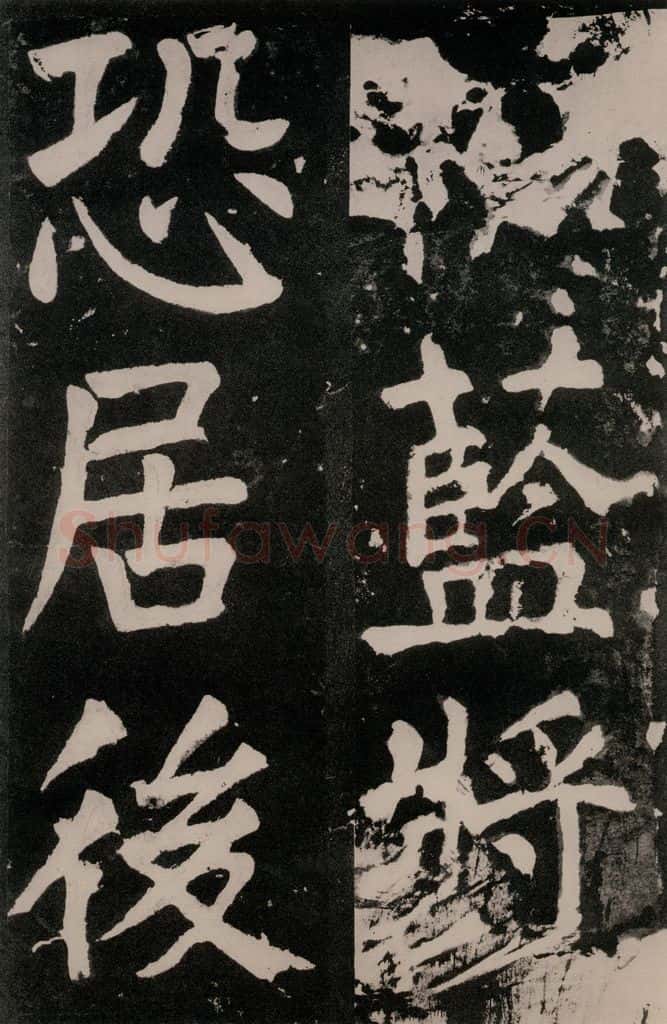 藍將
恐居後
Shufawang.CN